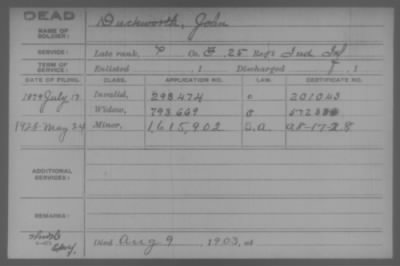 DEAD
NAME OF SOLDIER: Duckworth, John
SERVICE: Late rank, P Co. G, 25 Reg't Ind Inf
TERM OF SERVICE: Enlisted , 1 Discharged , 1
DATE OF FILING. CLASS. APPLICATION NO. LAW. CERTIFICATE NO.
1879 July 17 Invalid, 298474 201043
Widow, 793669
1928-May 24 Minor, 1,615,902 G.A. 98-17-28
ADDITIONAL SERVICES:
REMARKS:
Died Aug 9 , 1903, at